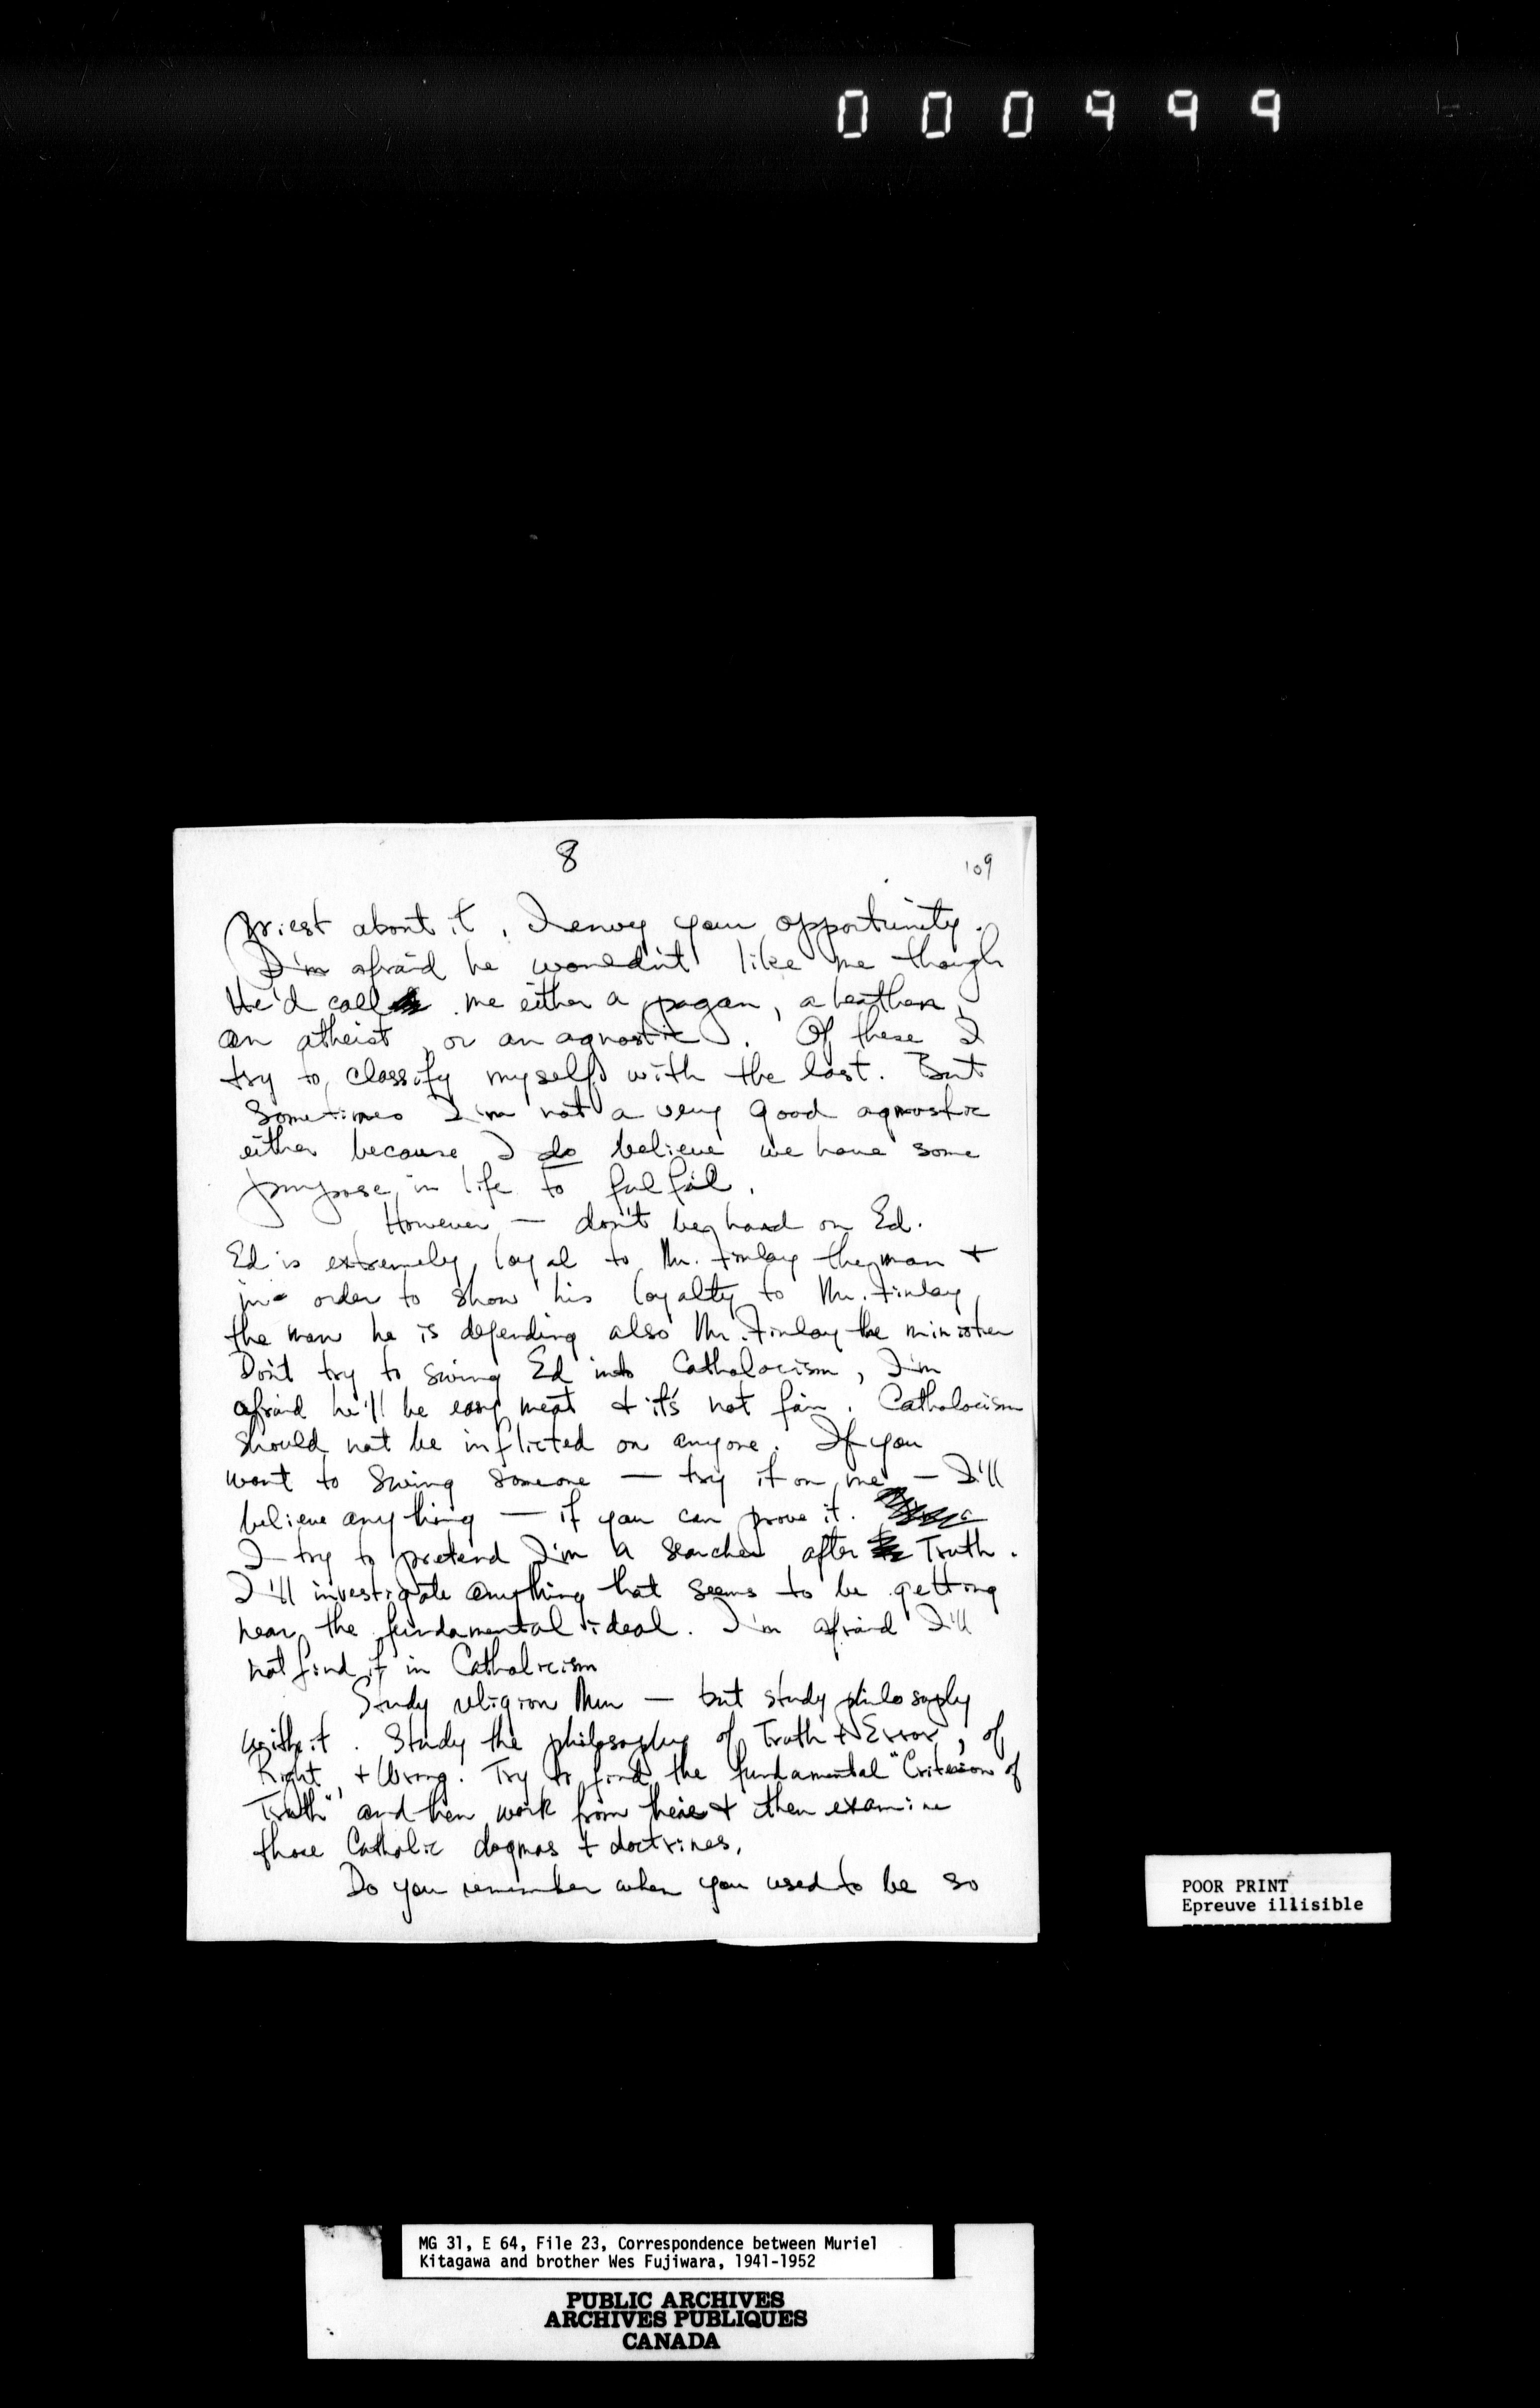 000999
8
109
priest about it. I envy your opportunity.
I'm afraid he wouldn't like me though
He'd call me either a pagan, a heathen,
an atheist, or an agnostic. Of these I
try to classify myself with the last. But
sometimes I'm not a very good agnostic
either because I do believe we have some
purpose in life to fulfil.
However — don't be hard on Ed.
Ed is extremely loyal to Mr. Finlay the man +
in order to show his loyalty to Mr. Finlay
the man he is defending also Mr. Finlay the minister
Don't try to swing Ed into Catholocism, I'm
afraid he'll be easy meat & it's not fair. Catholocism
should not be inflicted on anyone. If you
want to swing someone — try it on me — I'll
believe anything — if you can prove it.
I try to pretend I'm a searcher after Truth.
I'll investigate anything that seems to be getting
near the fundamental ideal. I'm afraid I'll
not find it in Catholicism
Study religion Mur — but study philosophy
with it. Study the philosophy of Truth + Error, of
Right + Wrong. Try to find the fundamental "Criterion of
Truth" and then work from there + then examine
those Catholic dogmas + doctrines.
Do you remember when you used to be so
POOR PRINT
Epreuve illisible
MG 31, E 64, File 23, Correspondence between Muriel
Kitagawa and brother Wes Fujiwara, 1941-1952
PUBLIC ARCHIVES
ARCHIVES PUBLIQUES
CANADA